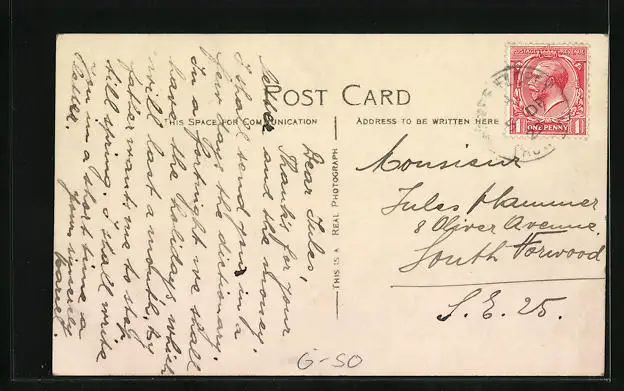 POST CARD
THIS SPACE FOR COMMUNICATION
ADDRESS TO BE WRITTEN HERE
THIS IS A REAL PHOTOGRAPH
Dear Jules,
Thanks for your
letter and the money.
I shall send you in a
few days the dictionary.
In a fortnight we shall
have the holidays which
will last a month. My
father wants me to stay
till spring. I shall write
you in a short time a
letter.
yours sincerely
Marcel.
Monsieur
Jules Hammer
8 Oliver Avenue.
South Norwood
S.E. 25.
POSTAGE REVENUE
1 ONE PENNY 1
G-50